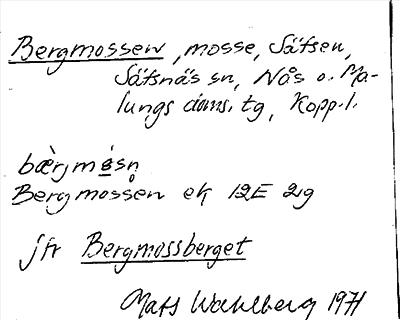 Bergmossen, mosse, Sätsen,
Sätsnäs sn, Nås o. Ma-
lungs doms. tg, Kopp. l.
bæ̀rjmósn̥
Bergmossen ek 12E 2g
jfr Bergmossberget
Mats Wahlberg 1971